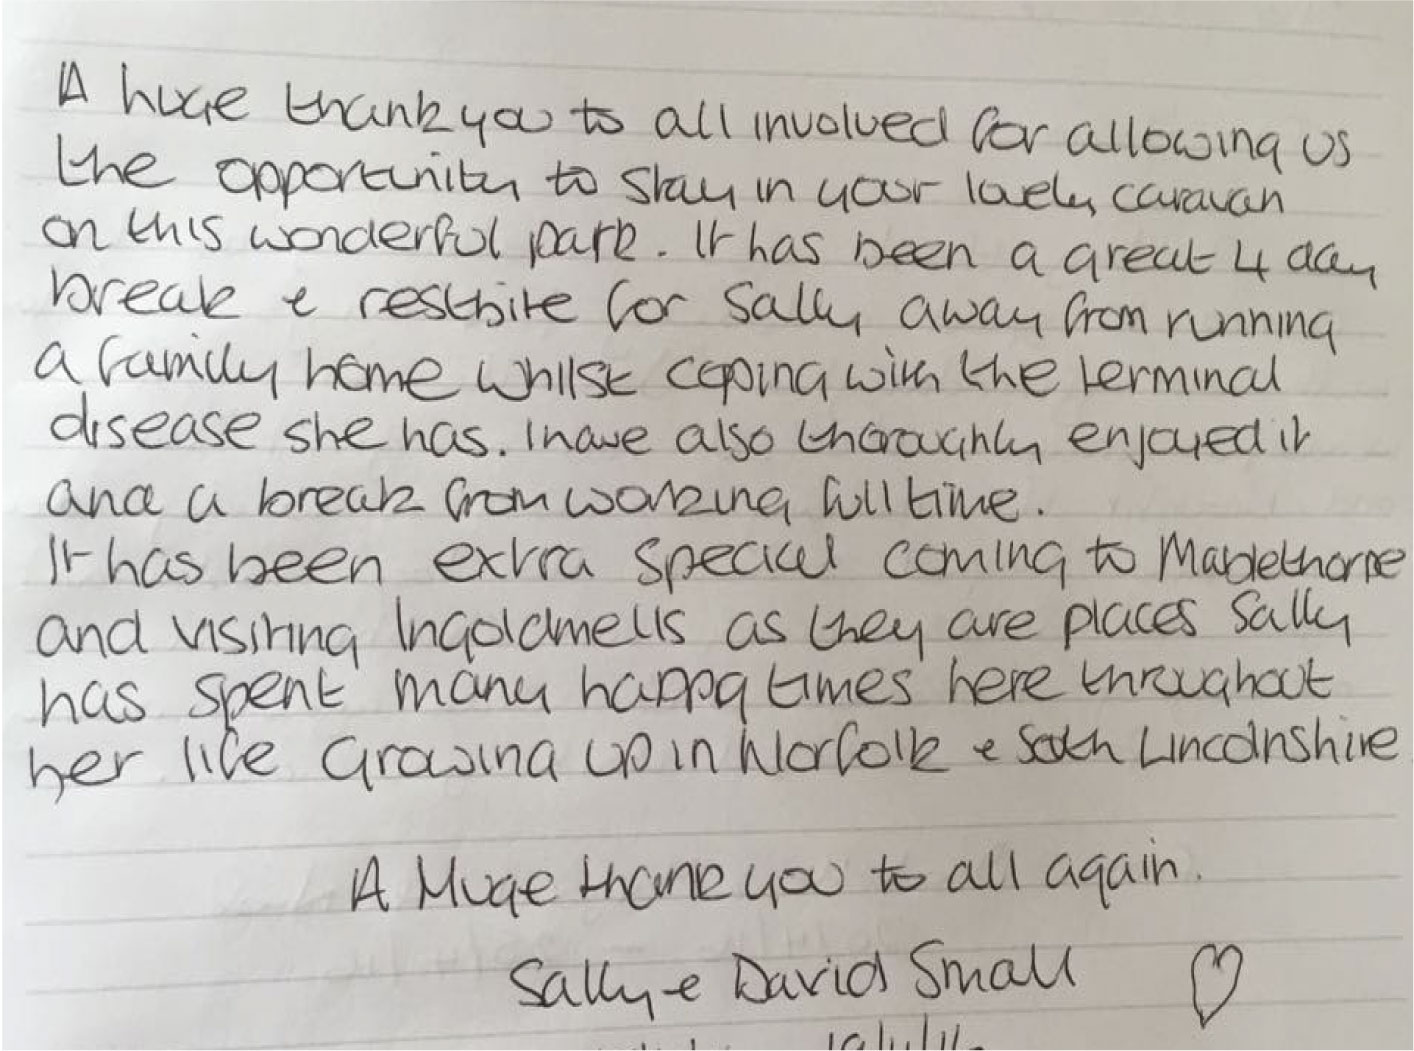 A huge thank you to all involved for allowing us
the opportunity to stay in your lovely caravan
on this wonderful park. It has been a great 4 day
break & restbite for Sally away from running
a family home whilst coping with the terminal
disease she has. I have also thoroughly enjoyed it
and a break from working full time.
It has been extra special coming to Mablethorpe
and visiting Ingoldmells as they are places Sally
has spent many happy times here throughout
her life growing up in Norfolk & South Lincolnshire
A Huge thank you to all again.
Sally & David Small ♡